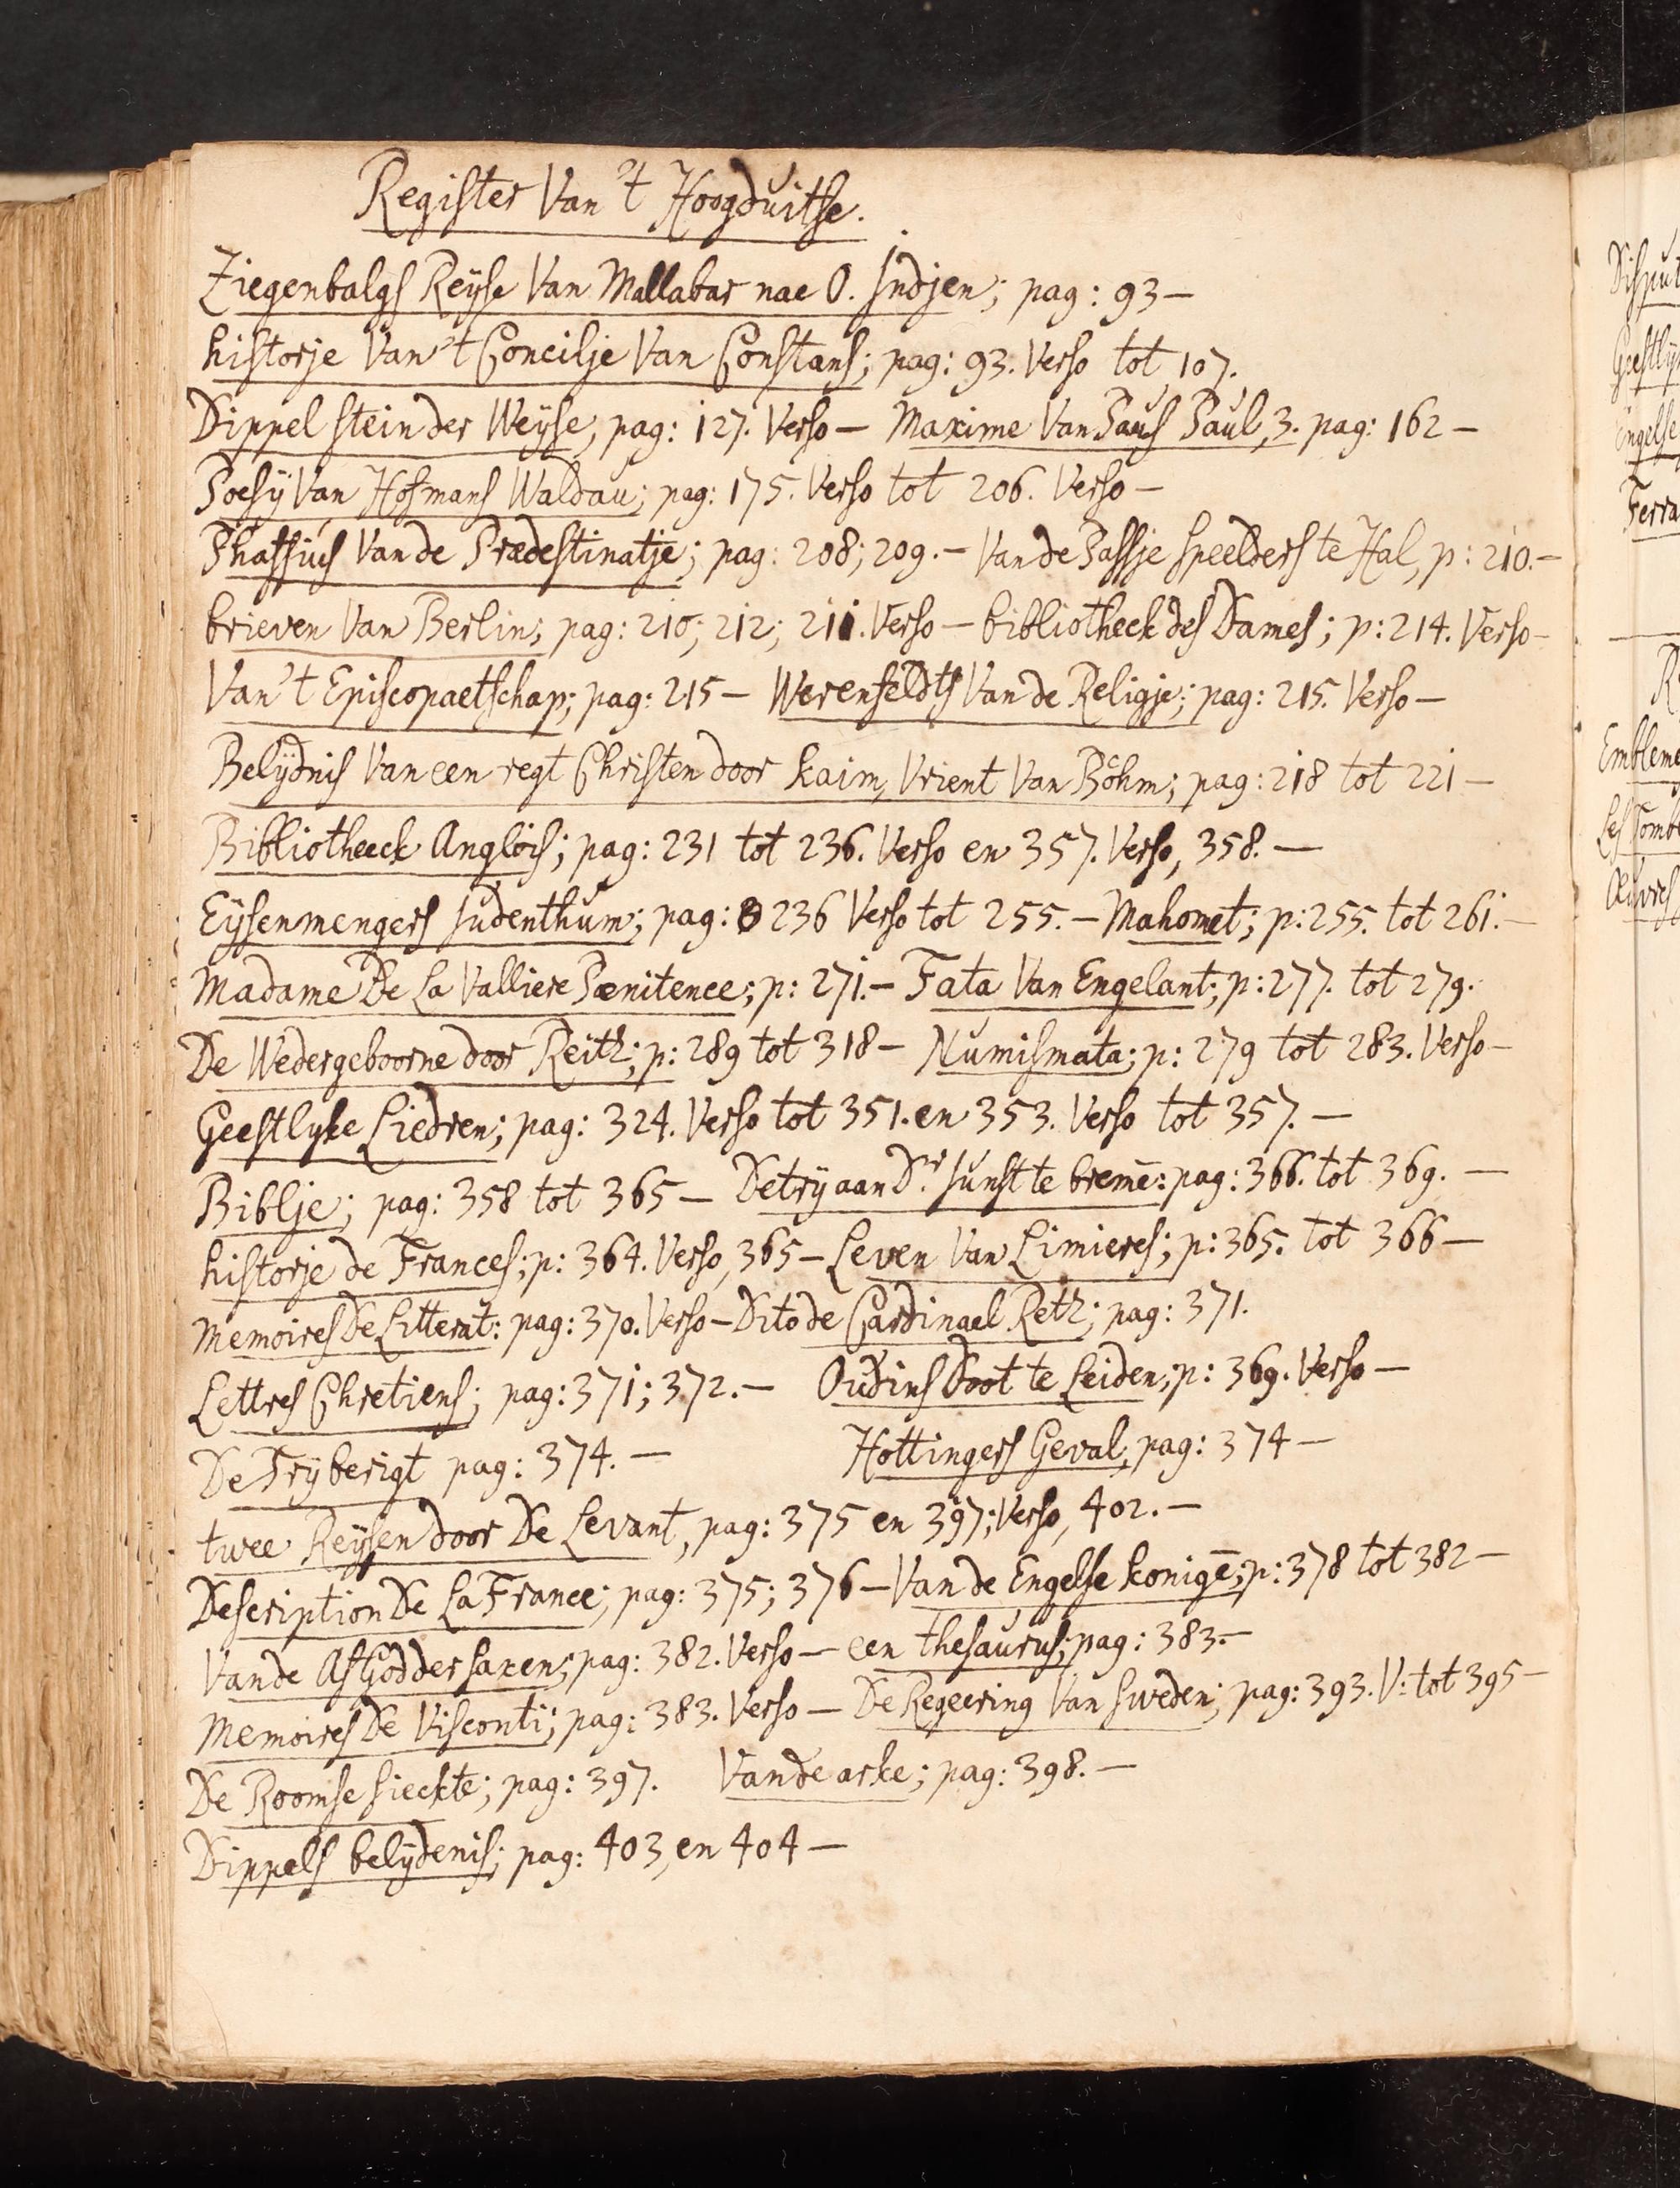 Register Van 't Hoogduitse.
Ziegenbalgs Reyse Van Mallabar nae O. Indjen; pag: 93 —
historje Van 't Concilje Van Constans; pag: 93. Verso tot 107.
Dippel stein der Weyse; pag: 127. Verso — Maxime Van Paus Paul, 3. pag: 162 —
Poesÿ Van Hofmans Waldau; pag: 175. Verso tot 206. Verso —
Phaffius Van de Prædestinatje; pag: 208; 209. — Van de Passje speelders te Hal, p: 210. —
brieven Van Berlin; pag: 210; 212; 211. Verso — bibliotheek des Dames; p: 214. Verso —
Van 't Episcopaetschap; pag: 215 — Werenfeldts Van de Religje; pag: 215. Verso —
Belÿdnis Van een regt Christen door kaim, Vrient Van Böhm; pag: 218 tot 221 —
Bibliotheeck Anglois; pag: 231 tot 236. Verso en 357. Verso, 358. —
Eÿsenmengers Judenthum; pag: 236 Verso tot 255. — Mahomet; p: 255. tot 261. —
Madame De La Valliere Pœnitence; p: 271. — Fata Van Engelant; p: 277. tot 279.
De Wedergeboorne door Reitz; p: 289 tot 318 — Numismata; p: 279 tot 283. Verso —
Geestlyke Liedren; pag: 324. Verso tot 351. en 353. Verso tot 357. —
Biblje; pag: 358 tot 365 — Detrÿ aan Dr. Iunst te bremē: pag: 366. tot 369. —
historje de Frances; p: 364. Verso, 365 — Leven Van Limieres; p: 365. tot 366 —
Memoires De Litterat: pag: 370. Verso — Dito de Cardinael Retz; pag: 371.
Lettres Chretiens; pag: 371; 372. — Oudins Doot te Leiden; p: 369. Verso —
De Trÿ berigt pag: 374. — Hottingers Geval, pag: 374 —
twee Reÿsen door De Levant, pag: 375 en 397; Verso, 402. —
Description De La France; pag: 375; 376 — Van de Engelse konigē; p: 378 tot 382 —
Van de Afgod der saxen; pag: 382. Verso — een thesaurus; pag: 383. —
Memoires De Visconti; pag: 383. Verso — De Regeering Van sweden; pag: 393. V: tot 395 —
De Roomse sieckte; pag: 397. Van de arke; pag: 398. —
Dippels belÿdenis; pag: 403, en 404 —